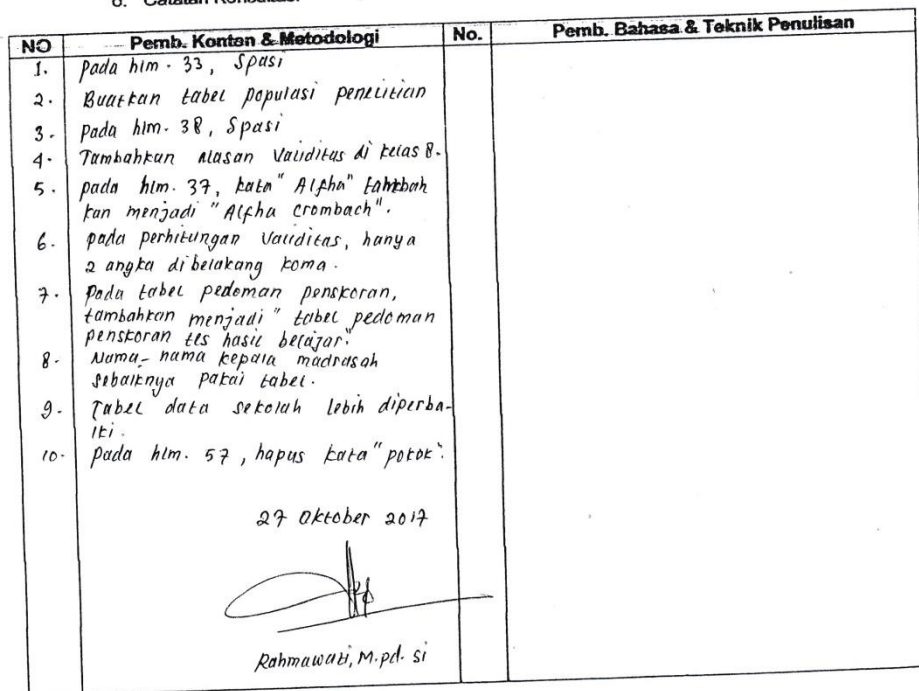 6. Catatan Konsultasi
NO Pemb. Konten & Metodologi No. Pemb. Bahasa & Teknik Penulisan
1. Pada hlm. 33, Spasi
2. Buatkan tabel populasi penelitian
3. Pada hlm. 38, Spasi
4. Tambahkan alasan Validitas di kelas 8.
5. pada hlm. 37, kata "Alpha" tambah
kan menjadi "Alpha Crombach".
6. pada perhitungan Validitas, hanya
2 angka di belakang koma.
7. Pada tabel pedoman penskoran,
tambahkan menjadi "tabel pedoman
penskoran tes hasil belajar."
8. Nama-nama kepala madrasah
sebaiknya pakai tabel.
9. Tabel data sekolah lebih diperba-
iki.
10. Pada hlm. 57, hapus kata "pokok".
27 Oktober 2017
Rahmawati, M.pd. Si